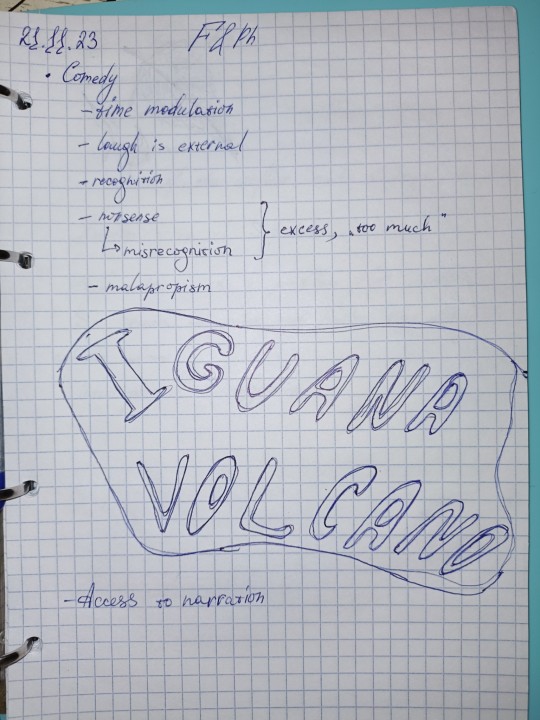 21.11.23 F&Ph
• Comedy
- time modulation
- laugh is external
- recognition
- nonsense
↳ misrecognition } excess, „too much"
- malapropism
IGUANA
VOLCANO
- Access to narration